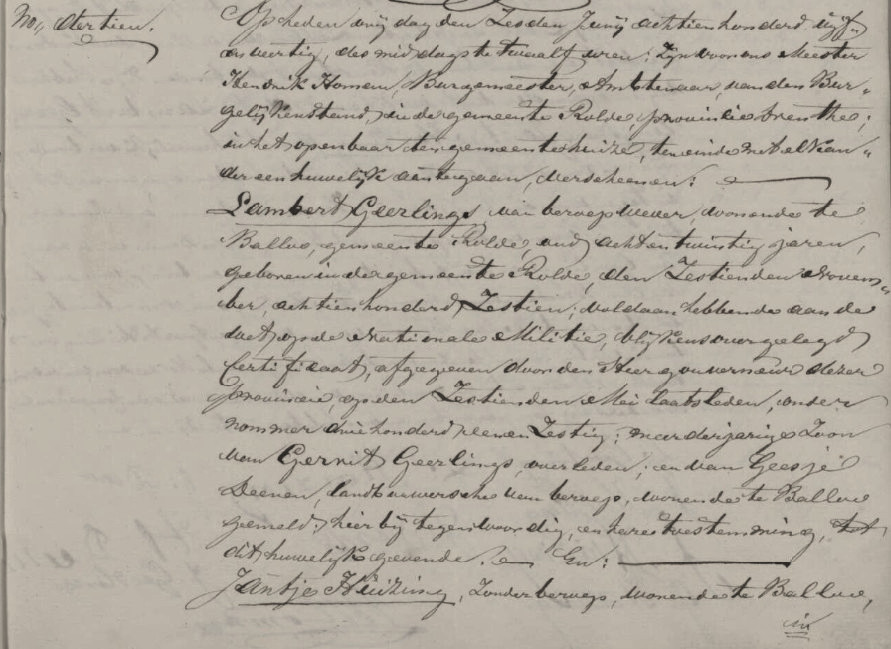 No,, dertien.
Op heden vrijdag den Zesden Junij achtienhonderd vijf-
en veertig, des middags te twaalf uren; Zijn voor ons Meester
Hendrik Homan, Burgemeester, Ambtenaar, van den Bur„
gelijkenstand, in de gemeente Rolde, provincie Drenthe;
in het openbaar ten gemeentenhuize, ten einde met elkan„
der een huwelijk aantegaan, verscheenen:
Lambert Geerlings van beroep wever, wonende te
Balloo, gemeente Rolde, oud achtentwintig jaren,
geboren in de gemeente Rolde, den Zestienden Novem„
ber, achtienhonderd Zestien; voldaan hebbende aan de
wet op de Nationale Militie, blijkens overgelegd
Certificaat, afgegeven door den Heer gouverneur dezer
provincie, op den Zestienden Mei laatsleden, onder
nommer driehonderd eenen Zestig; meerderjarige Zoon
van Gerrit Geerlings, overleden; en van Geesje
Deenen, landbouwersche van beroep, wonende te Balloo
gemeld; hier bij tegenwoordig, en hare toestemming, tot
dit huwelijk gevende. En:
Jantje Huizing, Zonder beroep, wonende te Balloo,
in